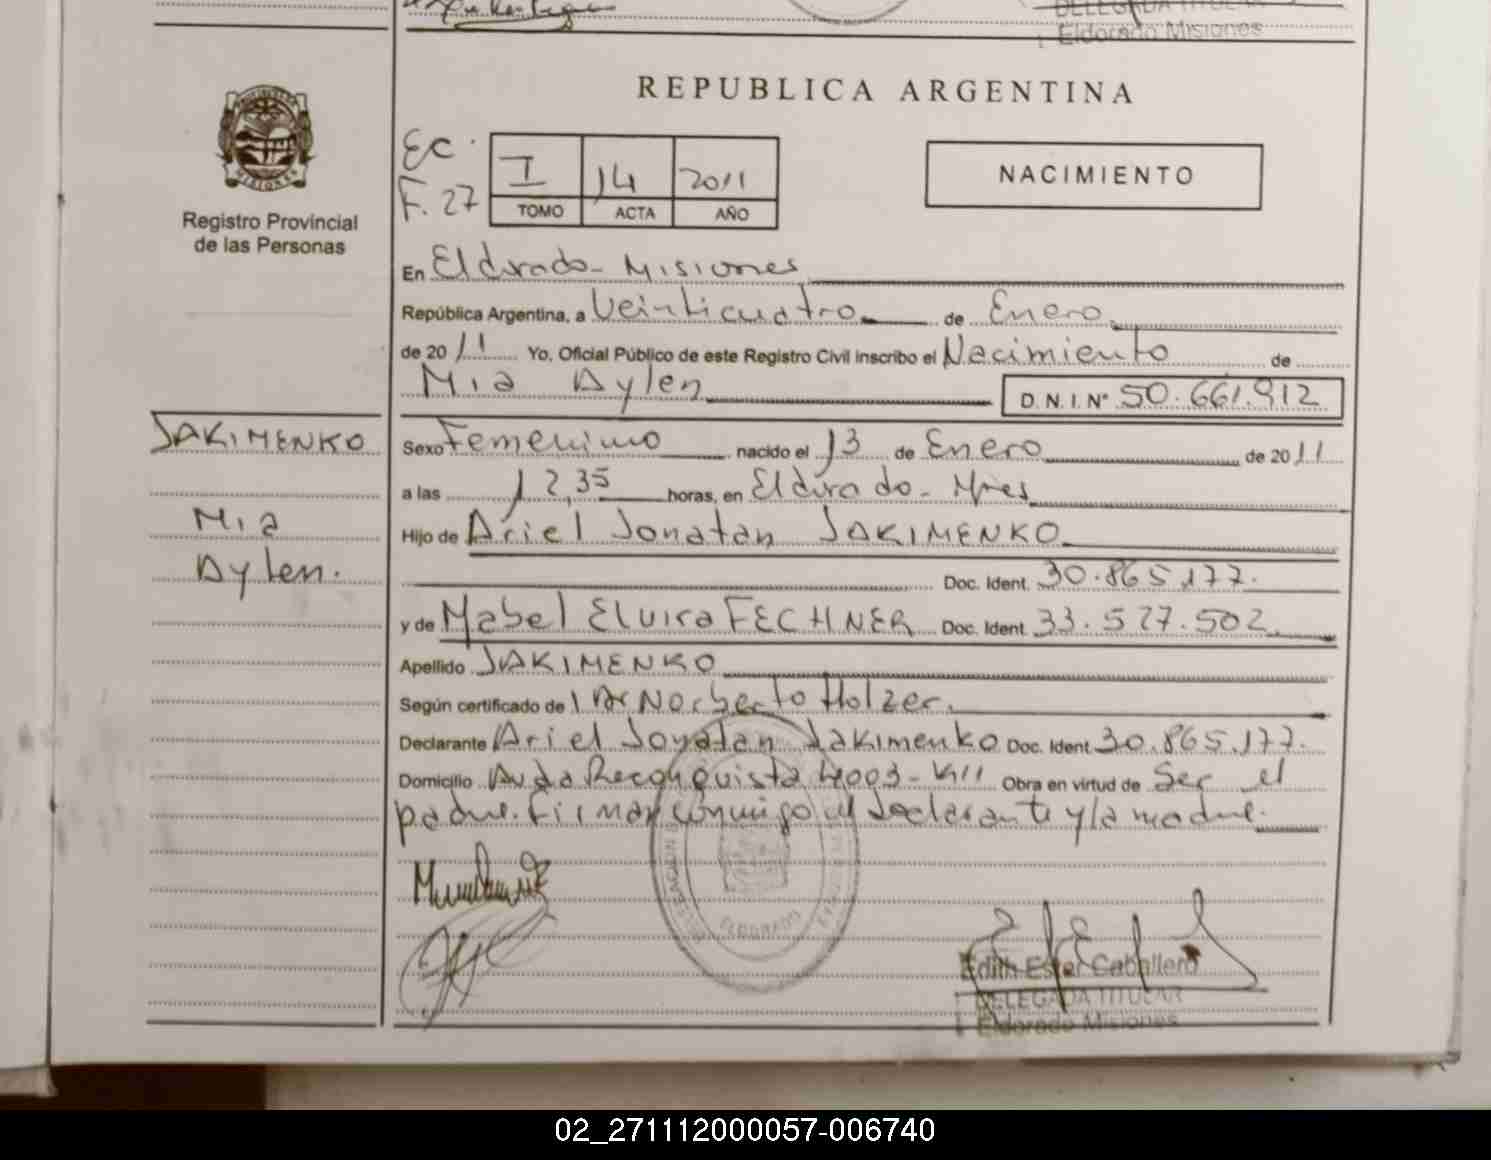 DELEGADA TITULAR
Eldorado Misiones
REPUBLICA ARGENTINA
PROVINCIA DE
MISIONES
Registro Provincial
de las Personas
Ec.
F. 27
I 14 2011
TOMO ACTA AÑO
NACIMIENTO
En Eldorado - Misiones
República Argentina, a Veinticuatro de Enero
de 2011 Yo, Oficial Público de este Registro Civil inscribo el Nacimiento de
Mia Aylen D.N.I. Nº 50.661.912
JAKIMENKO
Mia
Aylen.
Sexo Femenino nacido el 13 de Enero de 2011
a las 12,35 horas, en Eldorado - Mnes
Hijo de Ariel Jonatan JAKIMENKO
Doc. Ident. 30.865.177.
y de Mabel Elvira FECHNER Doc. Ident. 33.527.502
Apellido JAKIMENKO
Según certificado de Norberto Holzer.
Declarante Ariel Jonatan Jakimenko Doc. Ident. 30.865.177.
Domicilio Avda Reconquista 4003 - Obra en virtud de Ser el
padre. Firman conmigo el declarante y la madre.
ELDORADO
Edith Ester Caballero
DELEGADA TITULAR
Eldorado Misiones
02_271112000057-006740